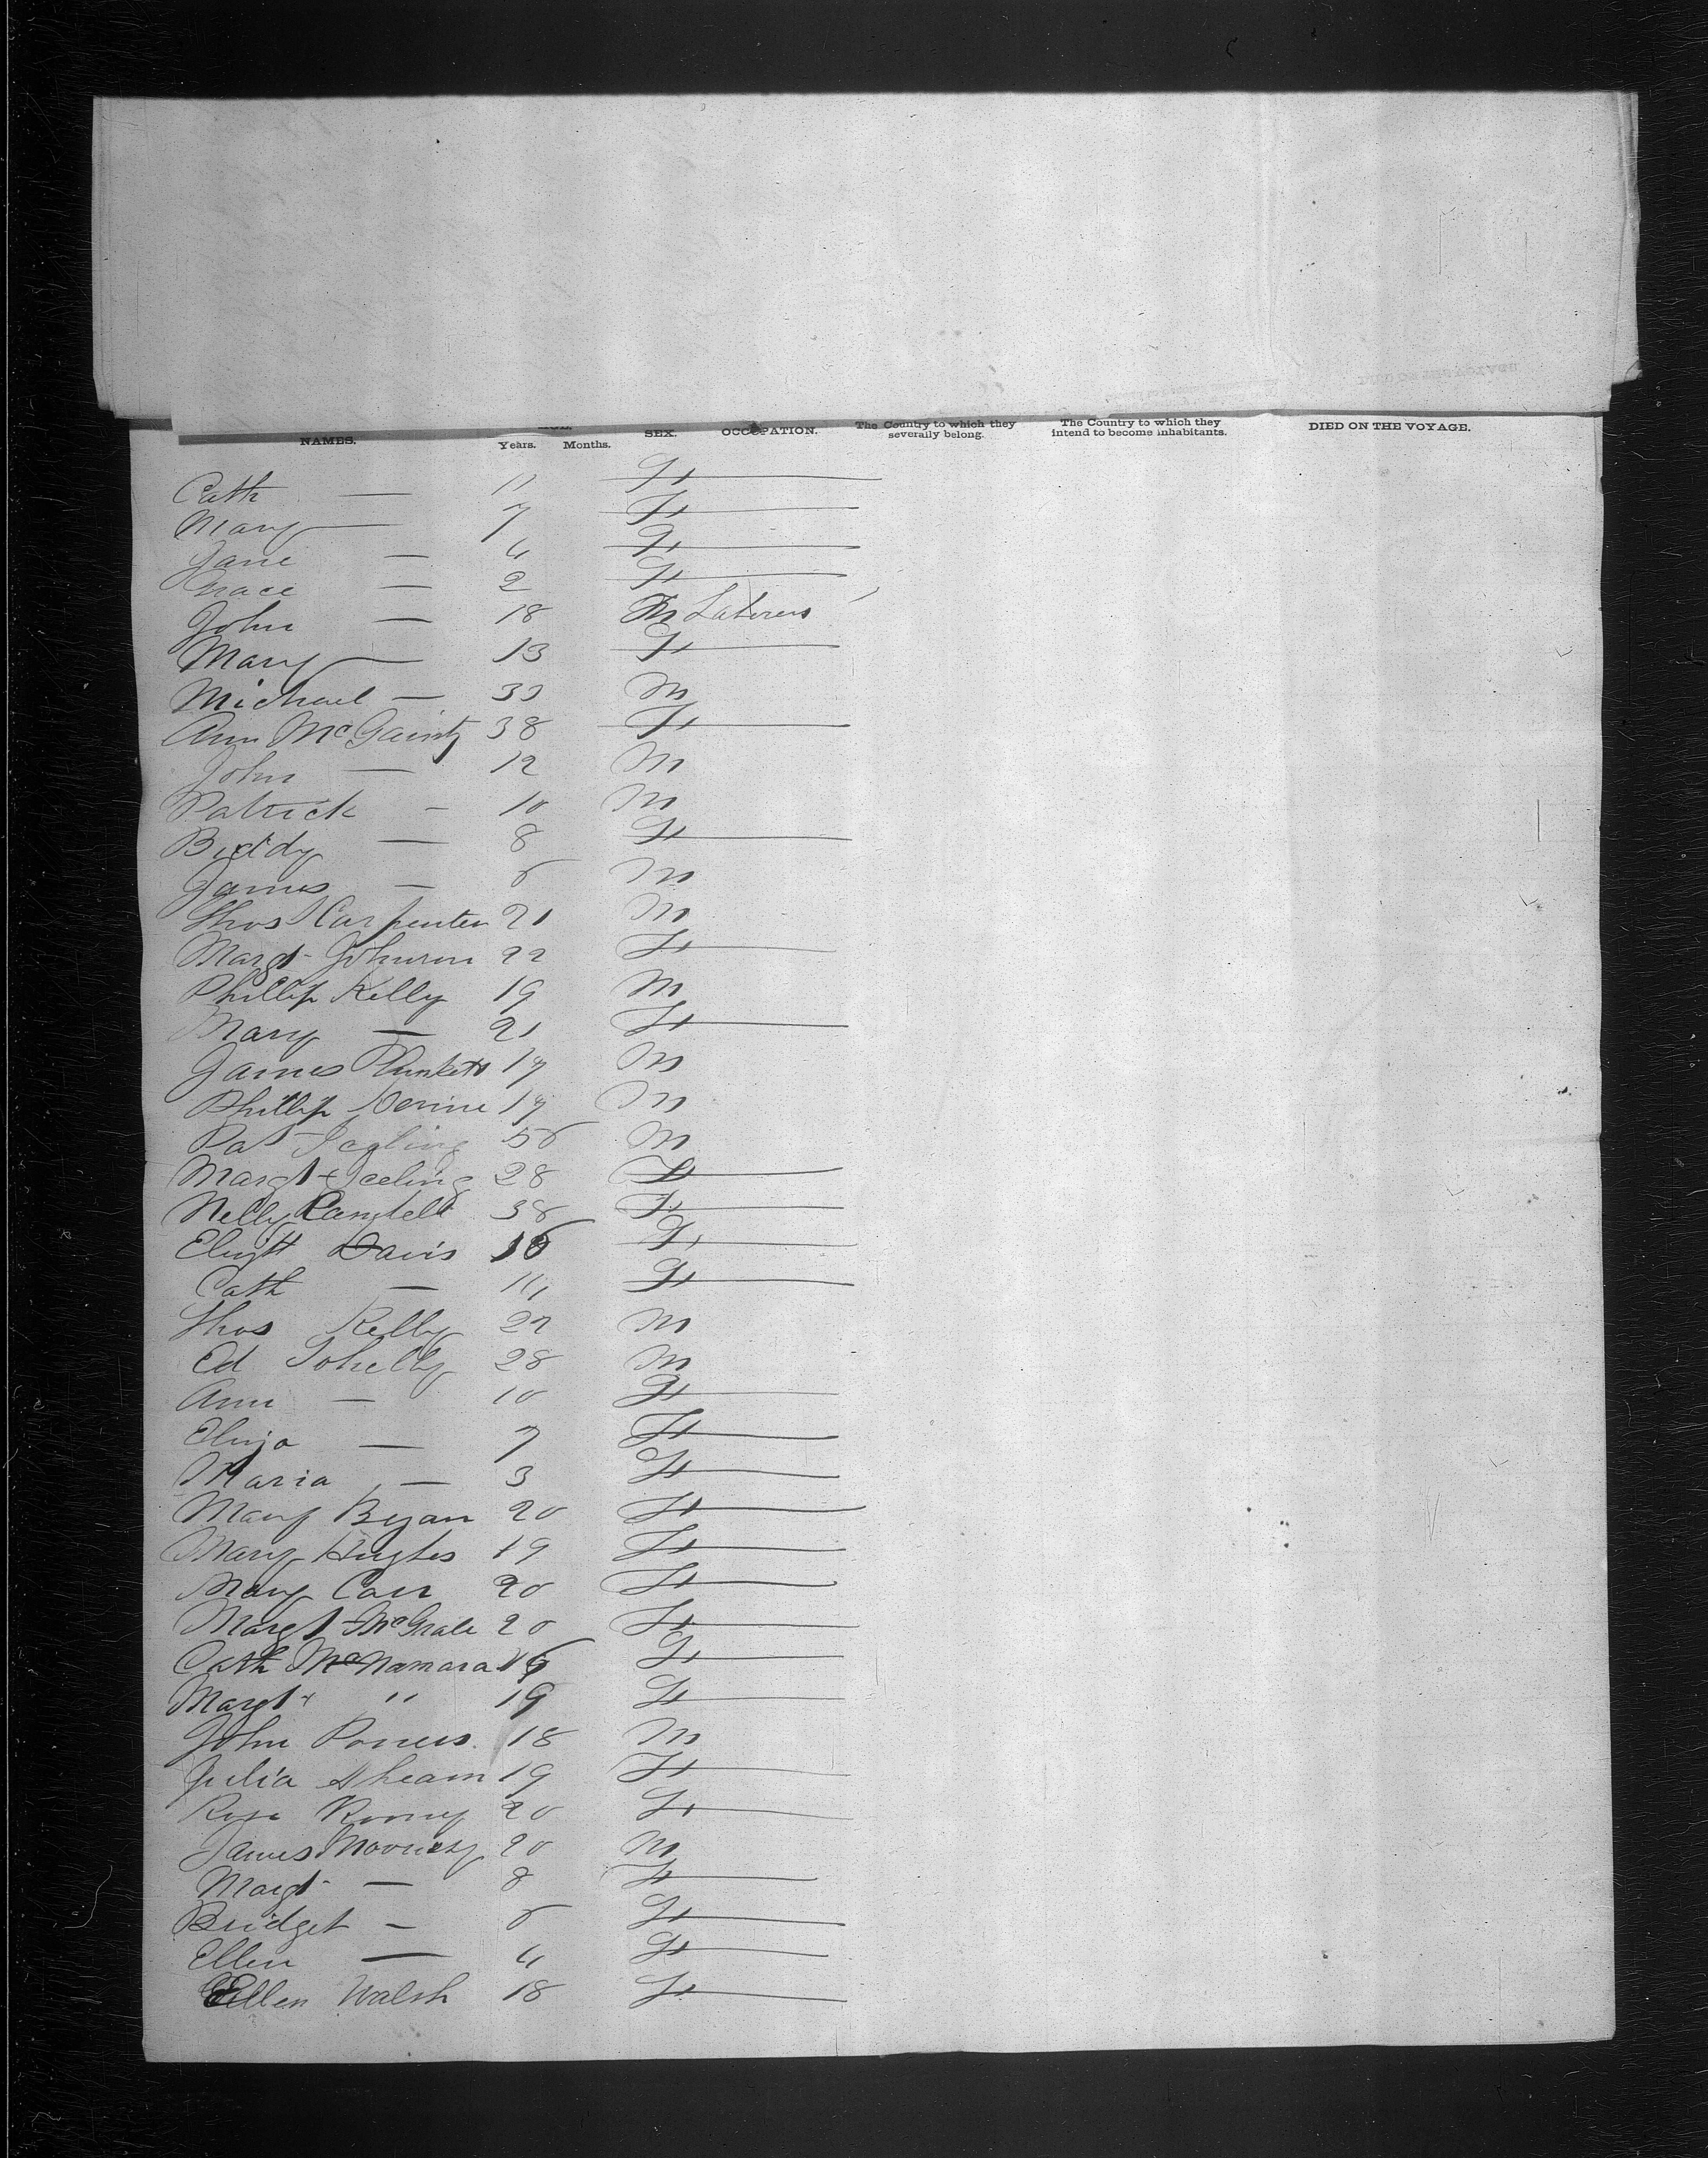 NAMES. Years. Months. SEX. OCCUPATION. The Country to which they severally belong. The Country to which they intend to become inhabitants. DIED ON THE VOYAGE.
Cath — 11 F
Mary — 7 F
Jane — 4 F
Grace — 2 F
John — 18 M Laborers
Mary — 13 F
Michael — 30 M
Ann McGainty 38 F
John — 12 M
Patrick — 10 M
Biddy — 8 F
James — 6 M
Thos Carpenter 21 M
Margt Johnson 22 F
Phillip Kelly 19 M
Mary — 21 F
James Plunkett 17 M
Phillip 17 M
Pat 56 M
Margt 28 F
Nelly Campbell 38 F
Elizth Davis 16 F
Cath — 14 F
Thos Kelly 27 M
Ed 28 M
Ann — 10 F
Eliza — 7 F
Maria — 3 F
Mary Ryan 20 F
Mary Hughes 19 F
Mary Carr 20 F
Margt McGrale 20 F
Cath McNamara 16 F
Margt " 19 F
John Powers 18 M
Julia Ahearn 19 F
Rose Rooney 20 F
James Mooney 20 M
Margt — 8 F
Bridget — 6 F
Ellen — 4 F
Ellen Walsh 18 F